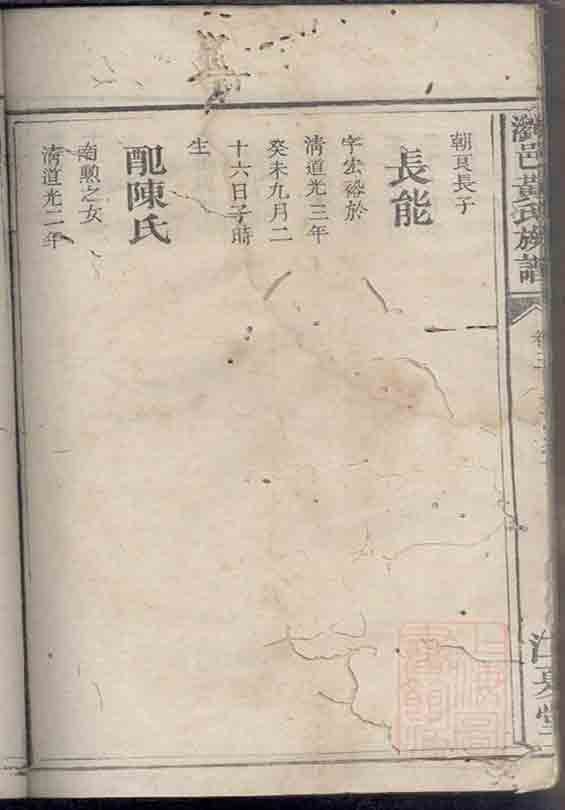 瀏邑黃氏族譜
卷二
江夏堂
朝良長子
長能
字宏裕於
清道光三年
癸未九月二
十六日子時
生
配陳氏
南勲之女
清道光二年